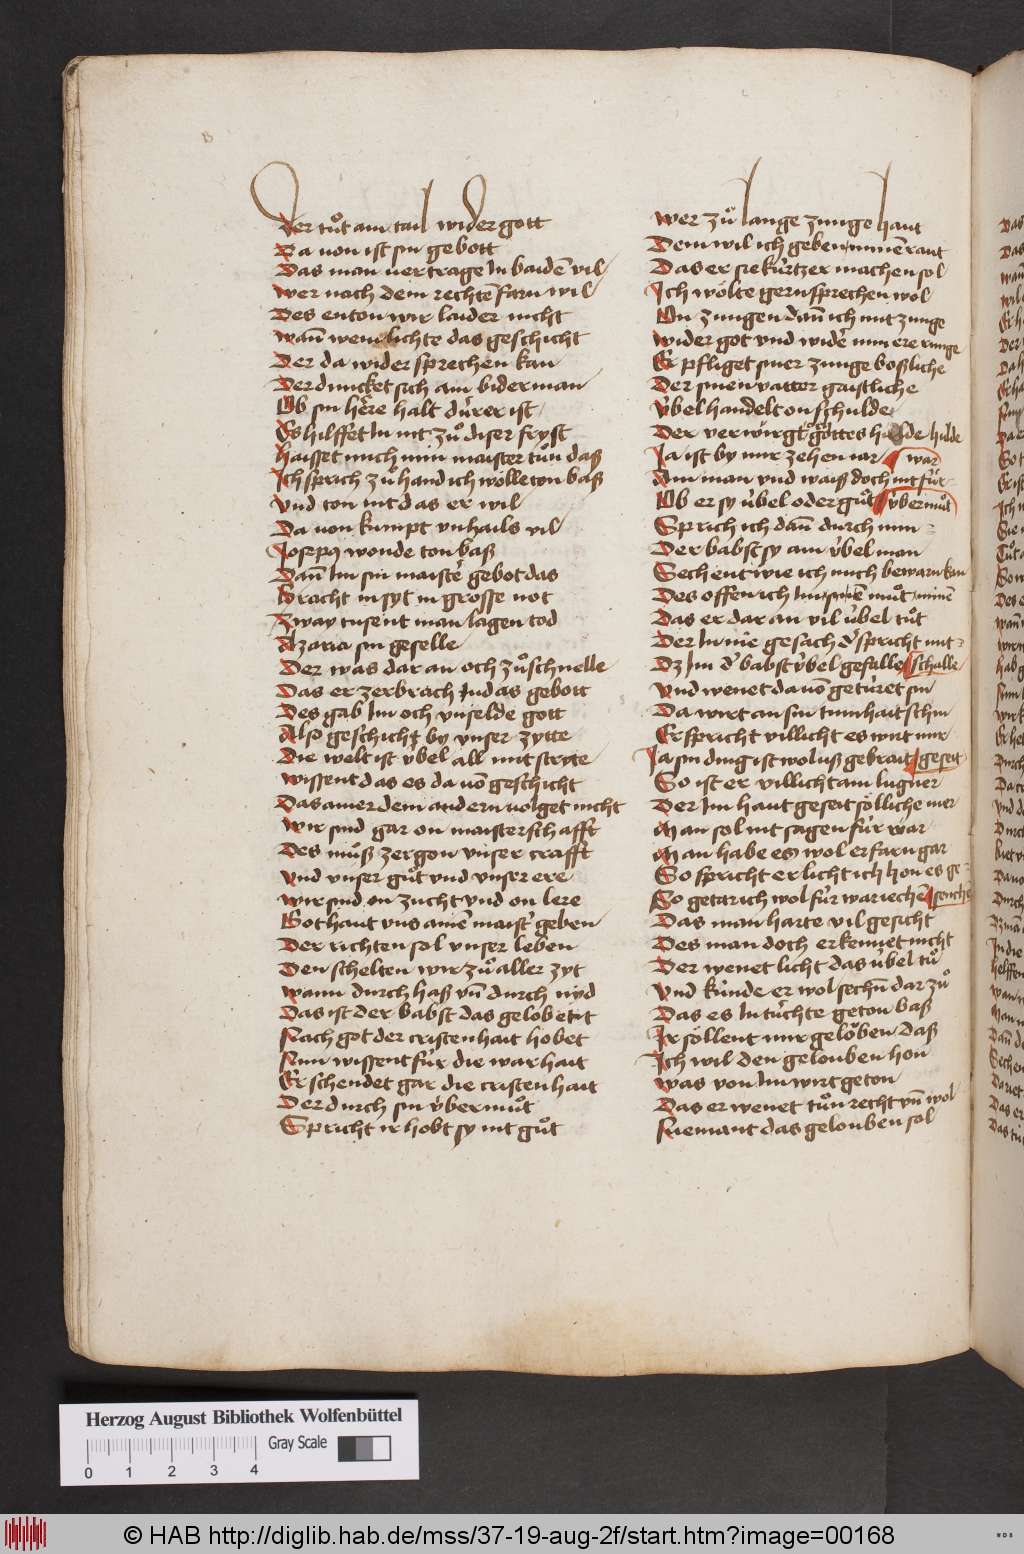 Der tuͦt ain tail wider gott
Da von ist sin gebott
Das man vertrage In baidē vil
Wer nach dem rechtē farn wil
Des enton wir laider nicht
Wañ wem lichte das geschicht
Der da wider sprechen kan
Der duncket sich ain biderman
Ob sin here halt dürer ist
Es hilffet In nit zuͦ diser fryst
Haisset mich min maister tuͦn daß
Ich sprich zuͦ hand ich wolle ton baß
Vnd ton nit das er wil
Da von kumpt vnhails vil
Joseph wonde ton baß
Dañ Im sin maister gebot das
Bracht in syt in grosse not
Zway tusent man lagen tod
Azaria sin geselle
Der was dar an och zuͦ schnelle
Das er zerbrach Judas gebott
Des gab Im och vnselde gott
Also geschicht by vnser zytte
Die welt ist v̈bel all mit stryte
Wissent das es da vō geschicht
Das ainer dem andern volget nicht
Wir sind gar on maisterschafft
Des muͦß zergon vnser crafft
Vnd vnser guͦt vnd vnser ere
Wir sind on zucht vnd on lere
Got haut vns ainē maister geben
Der richten sol vnser leben
Den schelten wir zuͦ aller zyt
Wann durch haß vñ durch nyd
Das ist der babst das gelobetit
Nach got der cristenhait hobet
Nun wissent für die warhait
Er schendet gar die cristenhait
Der durch sin v̈bermuͦt
Spricht ir hobt sy nit guͦt
Wer zuͦ lange zunge haut
Dem wil ich geben minē raut
Das er sie kürtzer machen sol
Ich wölte gern sprechen wol
On zungen dañ ich mit zunge
Wider got vnd wider min ere runge
Er pfliget siner zunge boßliche
Der sinen vatter gaistliche
V̈bel handelt on schulde
Der verwirgt gottes hulde hulde
Ja ist by mir zehen iar war
Ain man vnd waiß doch nit für
Ob er sy v̈bel oder guͦt v̈bermuͦt
Sprich ich dañ durch min
Der babst sy ain v̈bel man
Sechent wie ich mich bewarn kan
Des offen ich Im sinē muͦt minē
Das er dar an vil v̈bel tuͦt
Der In nie gesach d' spricht mit
Dz Im d' babst v̈bel gefalle schalle
Vnd wenet da vō getüret sin
Da wirt an sin tumhait schin
Er spricht villicht es wit mir
Ja sin ding ist wol vß gebrait geseit
So ist er villicht ain lugner
Der Im haut geseit sölliche mer
Man sol nit sagen für war
Man habe es wol erfarn gar
So spricht er licht ich hon es ge
So getar ich wol für war iechē senche
Das man harte vil gesicht
Des man doch erkennet nicht
Der wenet licht das v̈bel tuͦ
Vnd künde er wol sechñ dar zuͦ
Das es In tüchte geton baß
Ir söllent mir gelöben daß
Ich wil den gelouben hon
Was von Im wirt geton
Das er wenet tuͦn recht vñ wol
Niemant das gelouben sol
Herzog August Bibliothek Wolfenbüttel
0 1 2 3 4
Gray Scale
© HAB http://diglib.hab.de/mss/37-19-aug-2f/start.htm?image=00168